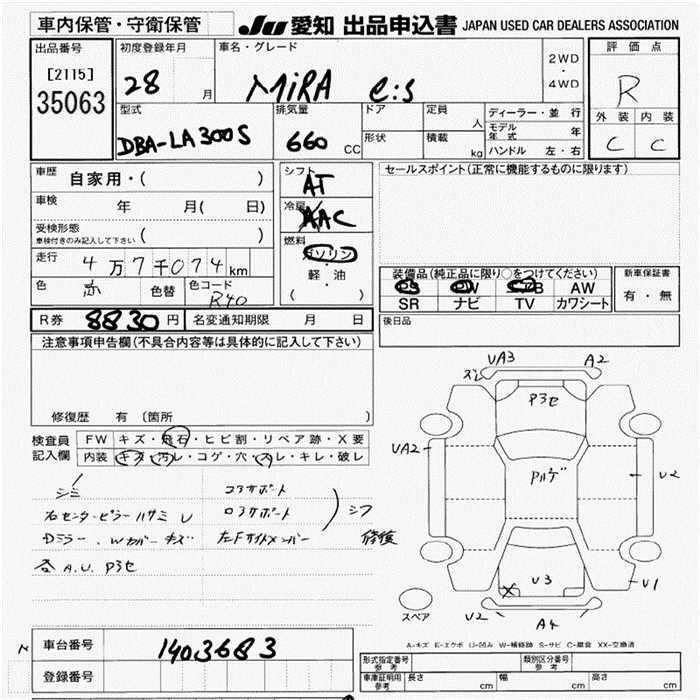 車内保管・守衛保管
JU 愛知 出品申込書 JAPAN USED CAR DEALERS ASSOCIATION
出品番号
[2115]
35063
初度登録年月
28 月
車名・グレード
MiRA e:s
2WD
・
4WD
評価点
R
外装 内装
C C
型式
DBA-LA300S
排気量
660 CC
ドア
形状
定員 人
積載 kg
ディーラー・並行
モデル年式 年
ハンドル 左・右
車歴 自家用・( )
車検 年 月( 日)
受検形態
車検付きのみ記入して下さい ( )
走行 4万7千074km
色 赤 色替 色コード R40
シフト
AT
冷房
AAC
燃料
ガソリン
・
軽・油
( )
セールスポイント(正常に機能するものに限ります)
装備品(純正品に限り○をつけてください)
PS PW AW
SR ナビ TV カワシート
新車保証書
有・無
R券 8830円 名変通知期限 月 日
後日品
注意事項申告欄(不具合内容等は具体的に記入して下さい)
修復歴 有 〔箇所 〕
検査員
記入欄
FW キズ・飛石・ヒビ割・リペア跡・X要
内装 キズ・汚レ・コゲ・穴・スレ・キレ・破レ
シミ
右センターピラーハサミ U
Dミラー、Wカバーキズ
各A.U.P3セ
コアサポート
ロアサポート
左Fサイドメンバー
修復
UA3 A2
ズレ
P3セ
UA2
U2
U3
X
U1
U2 A4
スペア
A-キズ E-エクボ U-凹み W-補修跡 S-サビ C-腐食 XX-交換済
車台番号 1403683
登録番号
形式指定番号
参考
類別区分番号
参考
車庫証明用
参考
長さ cm 幅 cm 高さ cm